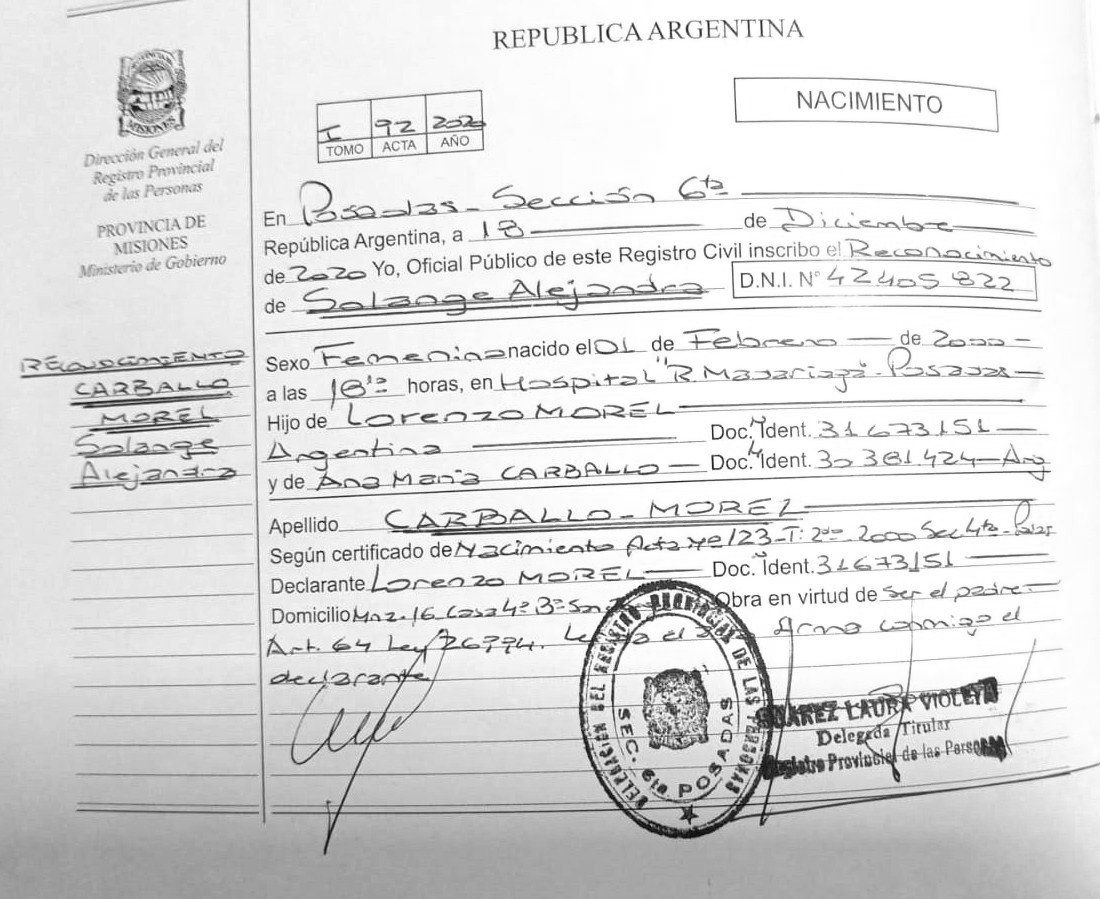 REPUBLICA ARGENTINA
NACIMIENTO
I 92 2020
TOMO ACTA AÑO
MISIONES
Dirección General del
Registro Provincial
de las Personas
PROVINCIA DE
MISIONES
Ministerio de Gobierno
RECONOCIMIENTO
CARBALLO
MOREL
Solange
Alejandra
En Posadas - Sección 6ta
República Argentina, a 18 de Diciembre
de 2020 Yo, Oficial Público de este Registro Civil inscribo el Reconocimiento
de Solange Alejandra D.N.I. N° 42405822
Sexo Femenino nacido el 01 de Febrero de 2000
a las horas, en Hospital "R. Madariaga" - Posadas
Hijo de Lorenzo MOREL
Argentina Doc. Ident. 31673151
y de Ana María CARBALLO Doc. Ident. 30381.424 - Arg
Apellido CARBALLO - MOREL
Según certificado de Nacimiento Acta 123 - T: 2000 Sec 4ta
Declarante Lorenzo MOREL Doc. Ident. 31673151
Domicilio Mnz. 16 Casa 4 Obra en virtud de Ser el padre
Art. 64 Ley 26994. el conmigo el
declarante
DELEGACION DEL REGISTRO PROVINCIAL DE LAS PERSONAS
SEC. 6ta POSADAS
SUAREZ LAURA VIOLETA
Delegada Titular
Registro Provincial de las Personas